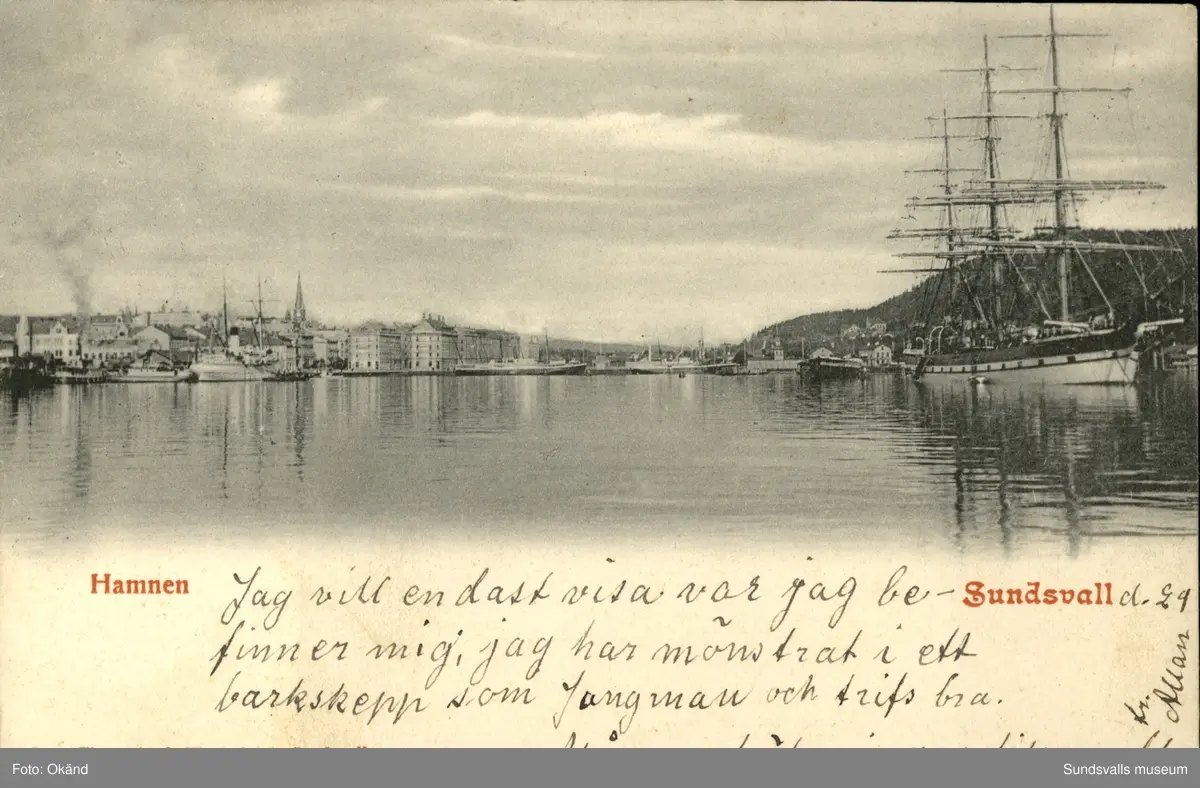 Hamnen
Jag vill endast visa var jag be-
Sundsvall d. 29
finner mig, jag har mönstrat i ett
barkskepp som Jungman och trifs bra.
Allan
Foto: Okänd
Sundsvalls museum